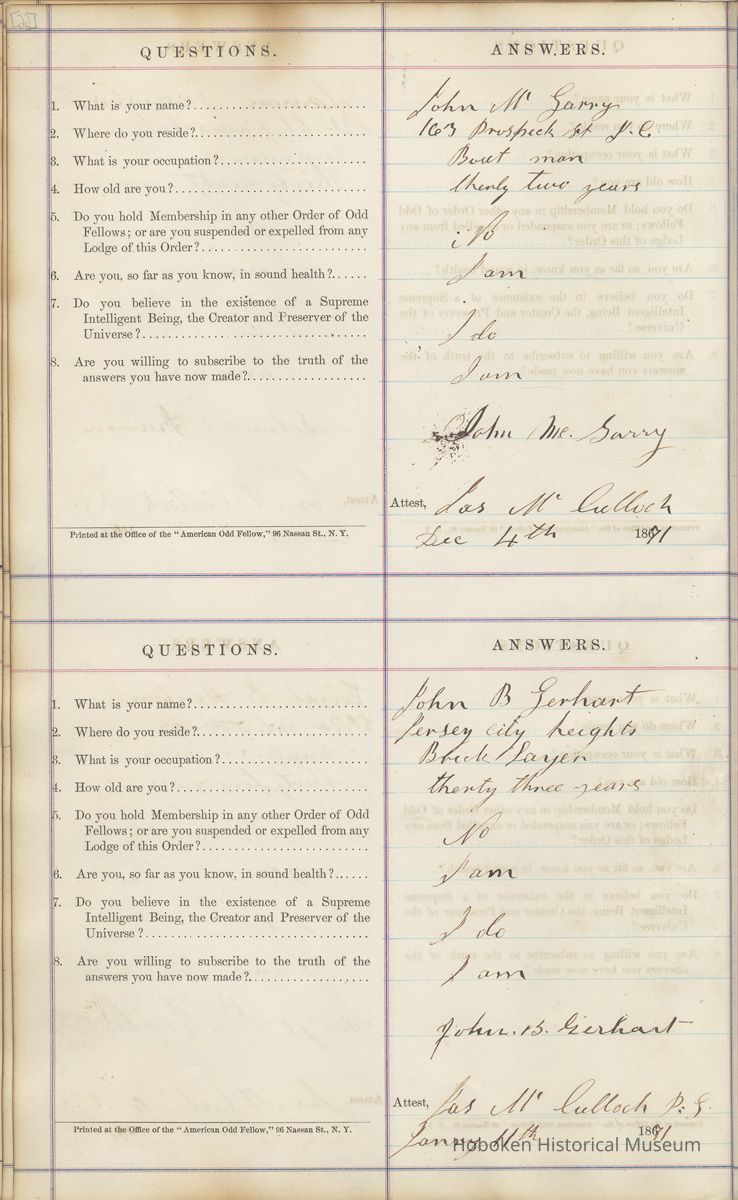 QUESTIONS.
ANSWERS.
1. What is your name?
John Mc Garry
2. Where do you reside?
163 Prospeck st J.C.
3. What is your occupation?
Boat man
4. How old are you?
therty two years
5. Do you hold Membership in any other Order of Odd
Fellows; or are you suspended or expelled from any
Lodge of this Order?
No
6. Are you, so far as you know, in sound health?
I am
7. Do you believe in the existence of a Supreme
Intelligent Being, the Creator and Preserver of the
Universe?
I do
8. Are you willing to subscribe to the truth of the
answers you have now made?
I am
John Mc. Garry
Attest, Jas Mc Culloch
Printed at the Office of the "American Odd Fellow," 96 Nassau St., N. Y.
Dec 4th 1871
QUESTIONS.
ANSWERS.
1. What is your name?
John B Gerhart
2. Where do you reside?
Jersey city heights
3. What is your occupation?
Brick Layer
4. How old are you?
therty three years
5. Do you hold Membership in any other Order of Odd
Fellows; or are you suspended or expelled from any
Lodge of this Order?
No
6. Are you, so far as you know, in sound health?
I am
7. Do you believe in the existence of a Supreme
Intelligent Being, the Creator and Preserver of the
Universe?
I do
8. Are you willing to subscribe to the truth of the
answers you have now made?
I am
John. B. Gerhart
Attest, Jas Mc Culloch P. G.
Printed at the Office of the "American Odd Fellow," 96 Nassau St., N. Y.
11th 1871
Hoboken Historical Museum